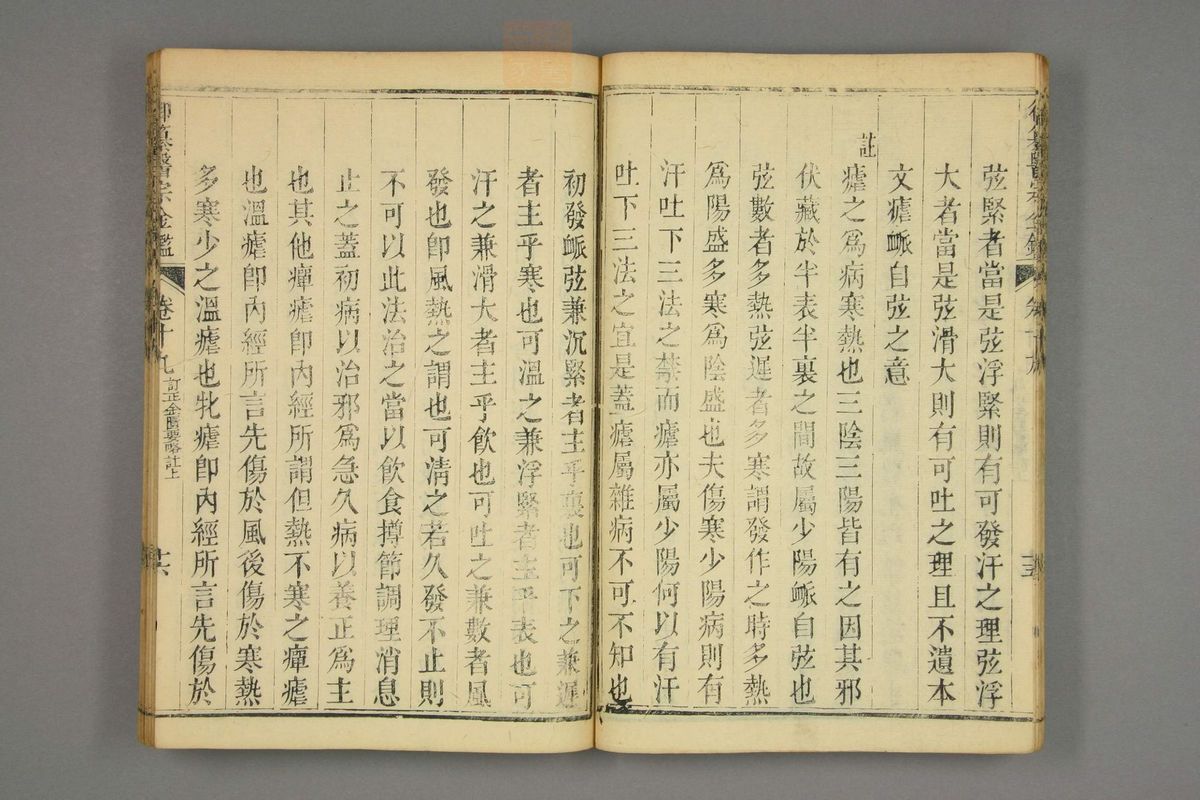 弦緊者當是弦浮緊則有可發汗之理弦浮
大者當是弦滑大則有可吐之理且不遺本
文瘧脈自弦之意
註
瘧之為病寒熱也三陰三陽皆有之因其邪
伏藏於半表半裏之間故屬少陽脈自弦也
弦數者多熱弦遲者多寒謂發作之時多熱
為陽盛多寒為陰盛也夫傷寒少陽病則有
汗吐下三法之禁而瘧亦屬少陽何以有汗
吐下三法之宜是蓋瘧屬雜病不可不知也
初發脈弦兼沉緊者主乎裏也可下之兼遲
者主乎寒也可溫之兼浮緊者主乎表也可
汗之兼滑大者主乎飲也可吐之兼數者風
發也卽風熱之謂也可清之若久發不止則
不可以此法治之當以飲食撙節調理消息
止之蓋初病以治邪為急久病以養正為主
也其他癉瘧卽內經所謂但熱不寒之癉瘧
也溫瘧卽內經所言先傷於風後傷於寒熱
多寒少之溫瘧也牝瘧卽內經所言先傷於
御纂醫宗金鑑
卷十九
訂正金匱要略註上